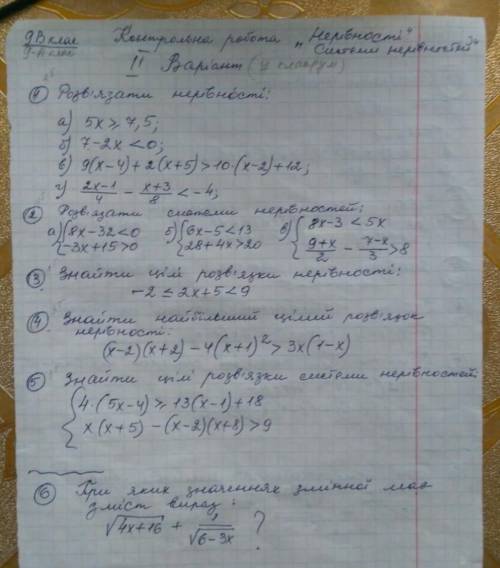 9В клас Контрольна робота „Нерівності“
9-А клас Системи нерівностей“
II Варіант
① Розв'язати нерівності:
а) 5x ≥ 7,5;
б) 7-2x < 0;
в) 9(x-4) + 2(x+5) > 10·(x-2)+12;
г) (2x-1)/4 - (x+3)/8 < -4;
② Розв'язати системи нерівностей:
а) {8x-32<0 б) {6x-5<13 в) {8x-3 < 5x
-3x+15>0 28+4x>20 (9+x)/2 - (7-x)/3 > 8
③ Знайти цілі розв'язки нерівності:
-2 ≤ 2x+5 < 9
④ Знайти найбільший цілий розв'язок
нерівності:
(x-2)(x+2) - 4(x+1)² > 3x(1-x)
⑤ Знайти цілі розв'язки системи нерівностей
{4·(5x-4) ≥ 13(x-1)+18
x(x+5) - (x-2)(x+8) > 9
⑥ При яких значеннях змінної має
зміст вираз:
√(4x+16) + 1/√(6-3x) ?